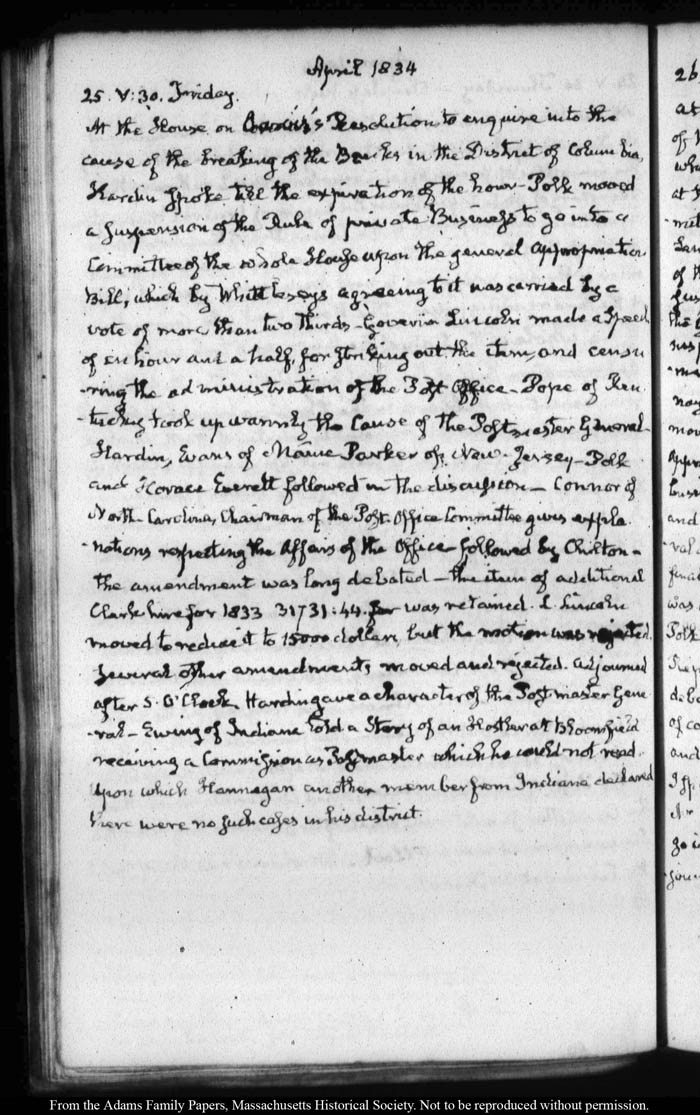 April 1834
25. V:30. Friday.
At the House on Resolution to enquire into the
cause of the breaking of the Banks in the District of Columbia,
Hardin spoke till the expiration of the hour – Polk moved
a suspension of the Rule of private Business to go into a
Committee of the whole House upon the general appropriation
Bill; which by Whittlesey's agreeing to it was carried by a
vote of more than two thirds – Governor Lincoln made a Speech
of an hour and a half, for striking out the item, and censu
-ring the administration of the Post Office – Pope of Ken
-tucky took up warmly the Cause of the Postmaster General –
Hardin, Evans of Maine Parker of New-Jersey – Polk
and Horace Everett followed in the discussion – Connor of
North-Carolina, Chairman of the Post-Office Committee gives expla
-nations respecting the Affairs of the Office – followed by Chilton –
the amendment was long debated – the item of additional
Clark hire for 1833 31731:44. was retained. L. Lincoln
moved to reduce it to 15000 dollars, but the motion was rejected.
Several other amendments, moved and rejected. Adjourned
after 5. O'Clock. Hardin gave a character of the Postmaster Gene
-ral – Ewing of Indiana told a Story of an Hostler at Bloomfield
receiving a Commission as Postmaster which he could not read.
Upon which Hannegan another member from Indiana declared
there were no such cases in his district.
From the Adams Family Papers, Massachusetts Historical Society. Not to be reproduced without permission.